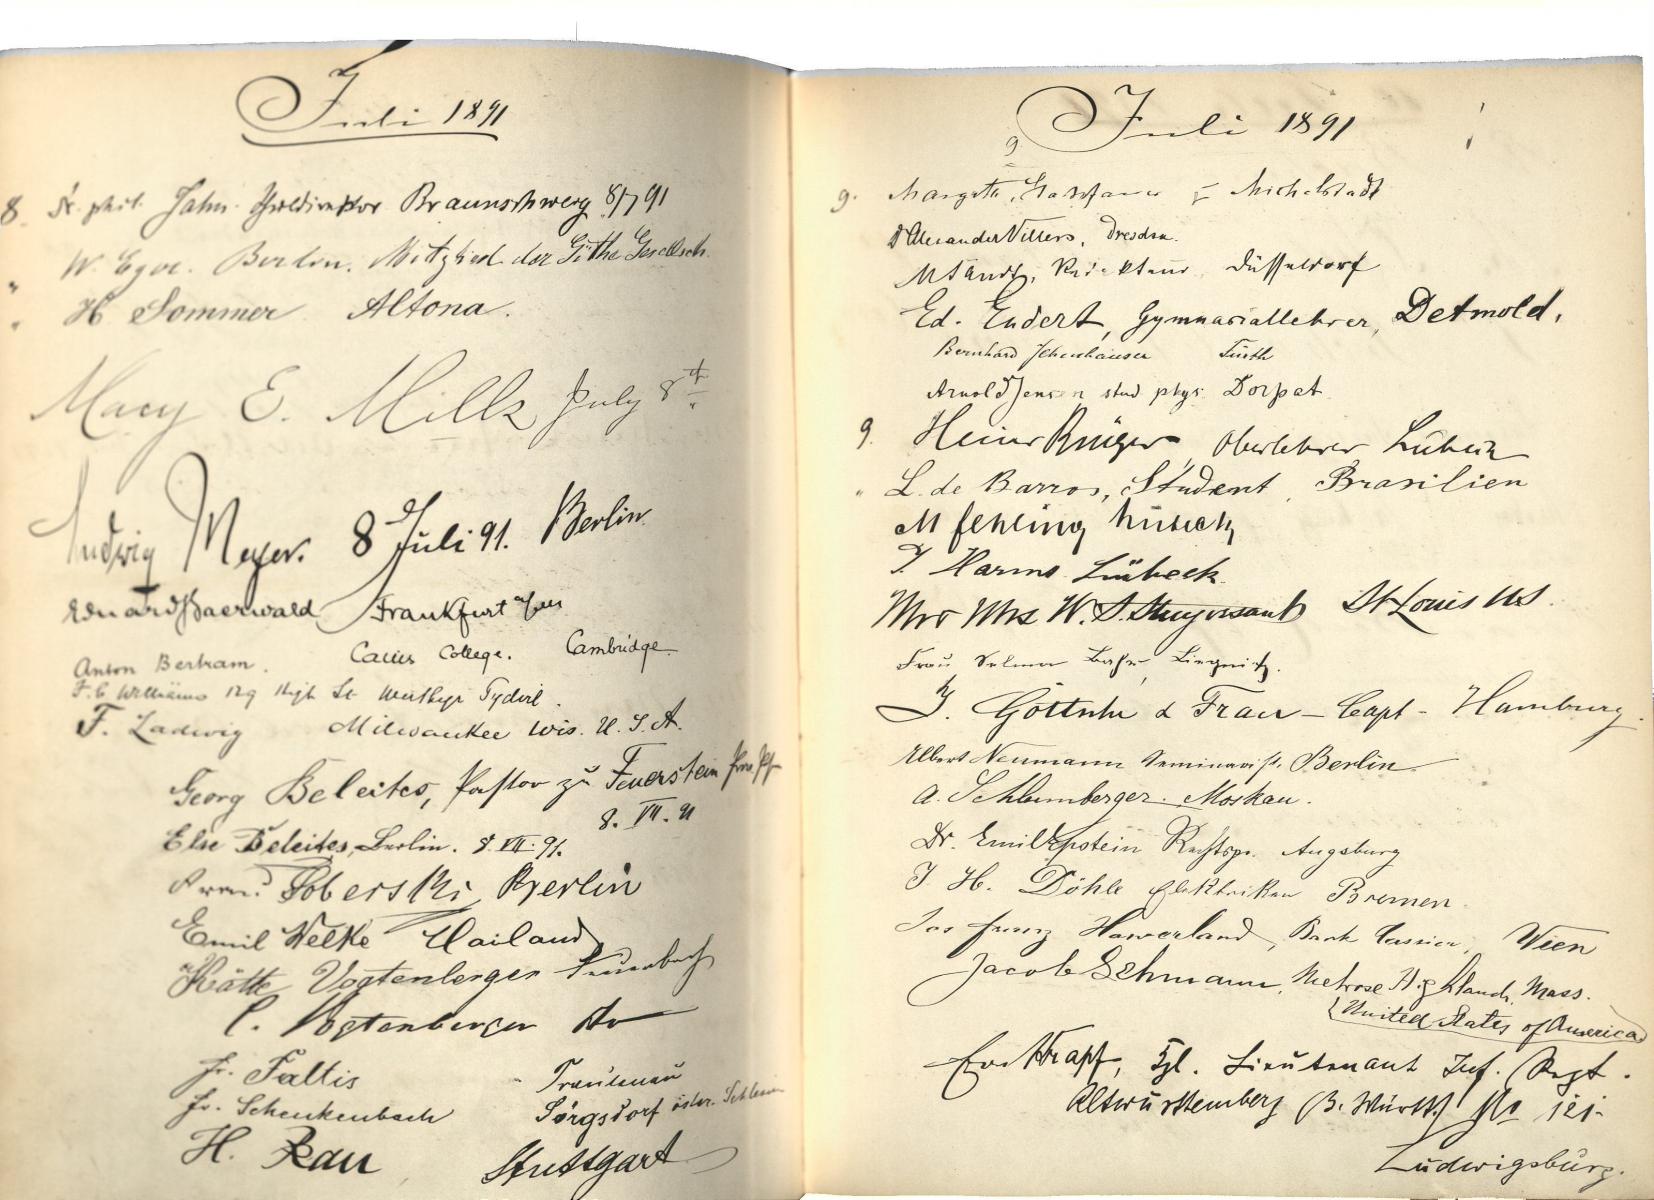 Juli 1891
8 Dr. phil. Jahn Braunschweig 8/7 91
" W. Eger. Berlin. Mitglied der Göthe Gesellsch.
" H Sommer Altona.
Mary E. Mills July 8th
Ludwig Meyer. 8 Juli 91. Berlin
Eduard Baerwald Frankfurt
Anton Bertram. Caius College. Cambridge
F. C. Williams 129 High St Merthyr Tydvil.
F. Ladwig Milwaukee Wis. U. S. A.
Georg Beleites, Pastor zu Feuerstein
8. VII. 91
Else Beleites, Berlin. 8. VII. 91.
Soberski, Berlin
Emil Welke Mailand
Kätte Vogtenberger Feuerbach
C. Vogtenberger
Fr. Faltis Trautenau
Fr. Schenkenbach Sörgsdorf österr. Schlesien
H. Rau Stuttgart
Juli 1891
9
9. Michelstadt
Dr Alexander Villers, Dresden.
Redakteur Düsseldorf
Ed. Endert, Gymnasiallehrer, Detmold.
Bernhard Ichenhäuser Fürth
Arnold Jensen stud phys. Dorpat
9. Heinr Krüger Oberlehrer Lübeck
" L. de Barros, Student, Brasilien
M Fehling Lübeck
J. Harms Lübeck
Mr & Mrs W. S. Stuyvesant St Louis US.
Frau Selma Liegnitz.
J. Göttsche & Frau - Capt - Hamburg.
Albert Neumann Seminarist. Berlin
A. Schlumberger. Moskau.
Dr. Emil Epstein Rechtspr. Augsburg
J. H. Döhle Elektriker Bremen
Franz Haverland, Bank Cassier, Wien
Jacob Lehmann, Melrose Highlands, Mass.
United States of America
Krapf, Kgl. Lieutenant Inf. Regt.
Altwürttemberg (3. Württ.) No 121.
Ludwigsburg.